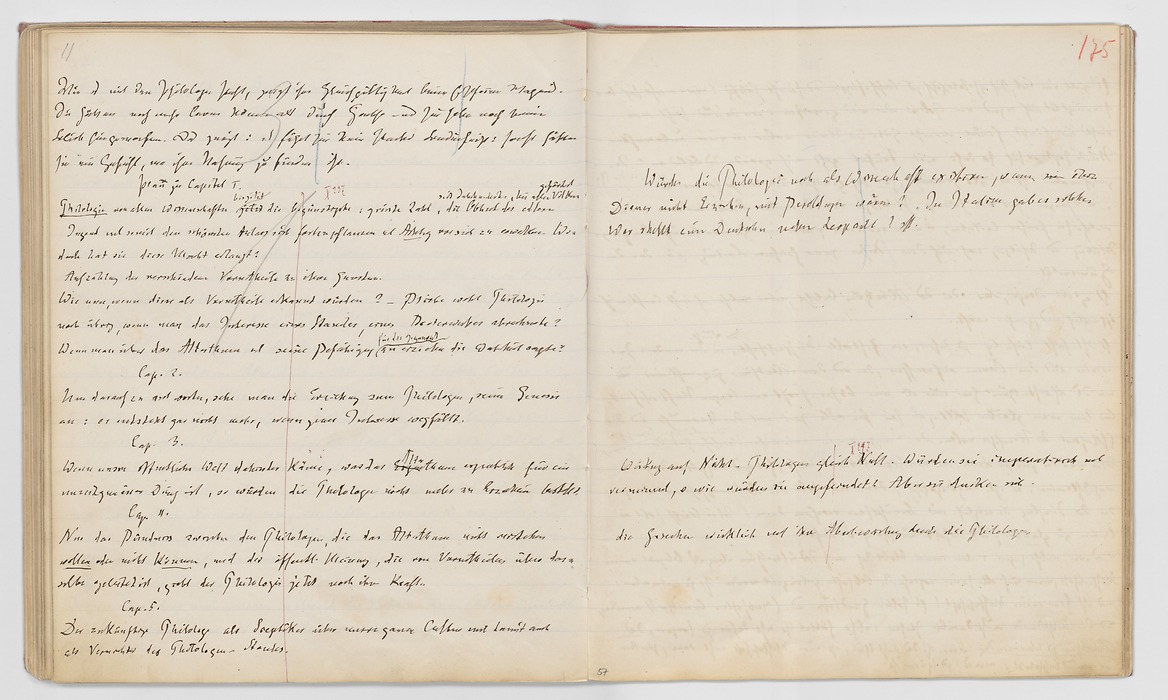 11
175
Wie es mit den Philologen steht, zeigt ihre Gleichgültigkeit beim Erscheinen Wagner's.
Sie hätten noch mehr lernen können als durch Goethe – und sie haben noch keinen
Blick hingeworfen. Das zeigt: es führt sie kein starkes Bedürfniss: sonst hätten
sie ein Gefühl, wo ihre Nahrung zu finden ist.
Plan zu Capitel 1.
bis jetzt seit Jahrhunderten, bei allen Völkern gefördert
Philologie von allen Wissenschaften die begünstigste: grösste Zahl, die Obhut der edlern
Jugend und somit den schönsten Anlass sich fortzupflanzen und Achtung vor sich zu erwecken. Wo-
durch hat sie diese Macht erlangt?
Aufzählung der verschiedenen Vorurtheile zu ihren Gunsten.
Wie nun, wenn diese als Vorurtheile erkannt würden? – Bliebe wohl Philologie
noch übrig, wenn man das Interesse eines Standes, eines Broderwerbes abrechnete?
für die Gegenwart
Wenn man über das Alterthum und seine Befähigung zu erziehen die Wahrheit sagte?
Cap. 2.
Um darauf zu antworten, sehe man die Erziehung zum Philologen, seine Genesis
an: er entsteht gar nicht mehr, wenn jenes Interesse wegfällt.
Cap. 3.
Wenn unsere öffentliche Welt dahinter käme, was das Alterthum eigentlich für ein
unzeitgemässes Ding ist, so würden die Philologen nicht mehr zu Erziehern bestellt.
Cap. 4.
Nur das Bündniss zwischen den Philologen, die das Alterthum nicht verstehen
wollen oder nicht können, und der öffentl. Meinung, die von Vorurtheilen über das-
selbe geleitet ist, giebt der Philologie jetzt noch ihre Kraft.
Cap. 5.
Der zukünftige Philologe als Sceptiker über unsere ganze Cultur und damit auch
als Vernichter des Philologen-Standes.
Würde die Philologie noch als Wissenschaft existiren, wenn ihre
Diener nicht Erzieher, mit Besoldungen wären? In Italien gab es solche.
Wer stellt einen Deutschen neben Leopardi z.B.
Wirkung auf Nicht-Philologen gleich Null. Würden sie imperatorisch und
verneinend, o wie würden sie angefeindet! Aber sie ducken sich.
die Griechen wirklich und ihre Abschwächung durch die Philologen
57